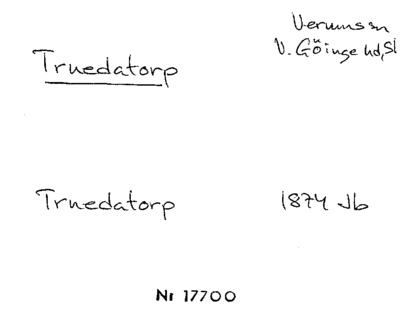 Truedatorp
Verums sn
V. Göinge hd, Sk
Truedatorp
1874 Jb
Nr 17700